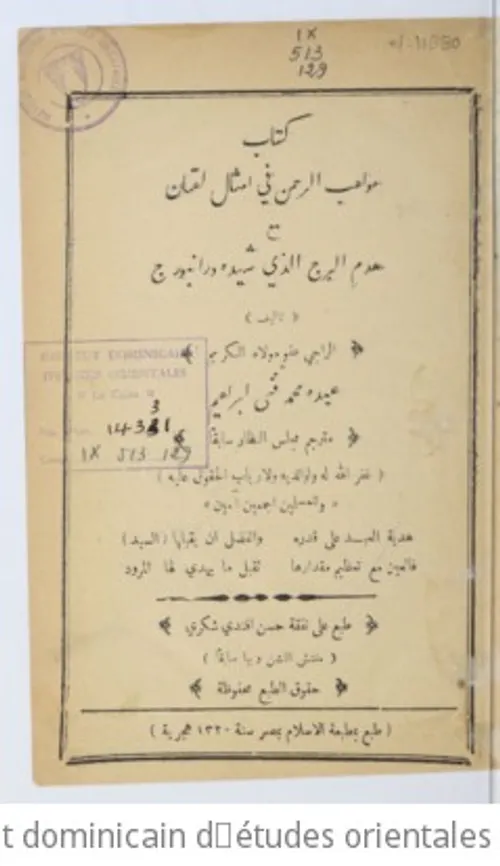 IX
513
129
كتاب
مواهب الرحمن في امثال لقمان
مع
هدم البرج الذي شيده ورانبورج
( تأليف )
الراجي عفو مولاه الكريم
عبده محمد فني ابراهيم
مترجم مجلس النظار سابقا
( غفر الله له ولوالديه ولارباب الحقوق عليه )
« والمسلمين اجمعين آمين »
هدية العبد على قدره والفضل ان يقبلها ( السيد )
فالعين مع تعظيم مقدارها تقبل ما يهدي لها المرود
طبع على نفقة حسن افندي شكري
( مفتش الشن وبيا سابقا )
حقوق الطبع محفوظة
( طبع بمطبعة الاسلام بمصر سنة ١٣٢٠ هجرية )
INSTITUT DOMINICAIN
D'ETUDES ORIENTALES
Le Caire
IX 513 129
t dominicain d□études orientales